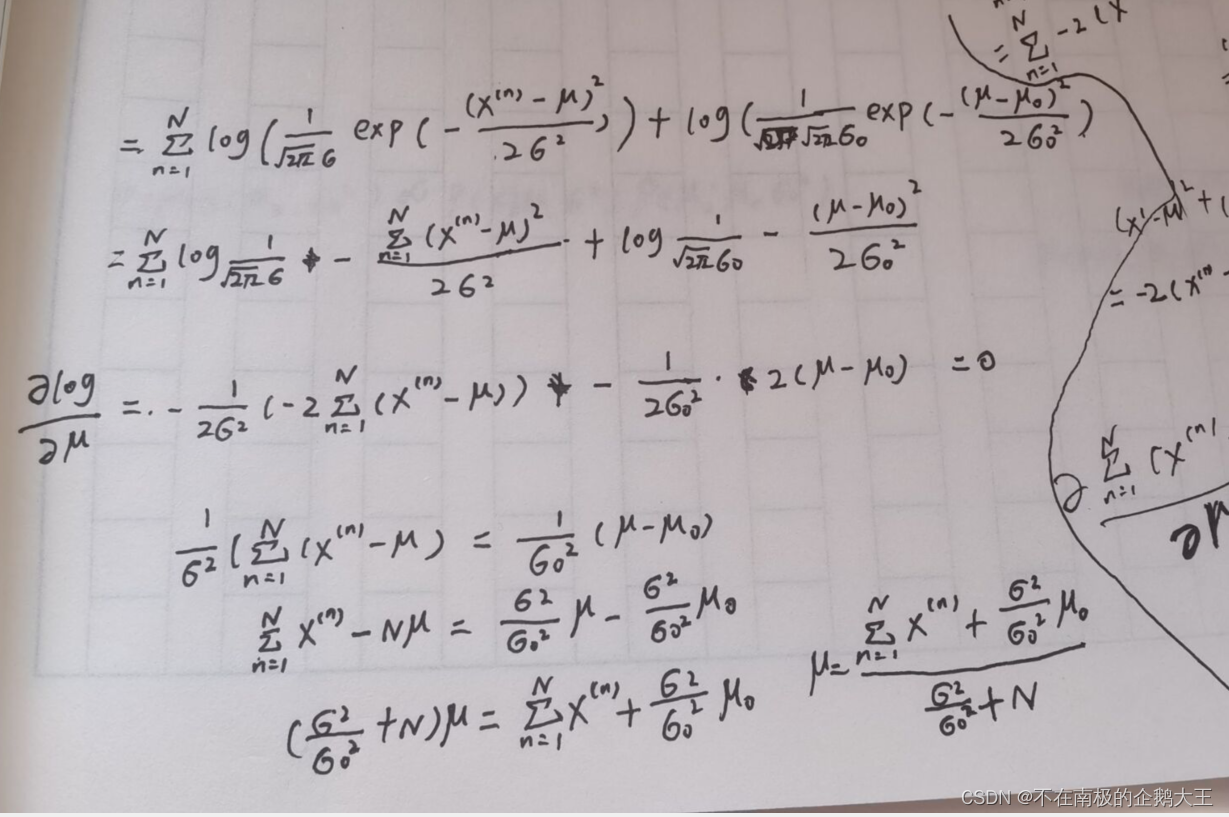 = \sum_{n=1}^{N} log(\frac{1}{\sqrt{2π}σ} exp(-\frac{(x^{(n)}-μ)^2}{2σ^2})) + log(\frac{1}{\sqrt{2π}σ_0} exp(-\frac{(μ-μ_0)^2}{2σ_0^2})
= \sum_{n=1}^{N} log \frac{1}{\sqrt{2π}σ} - \frac{\sum_{n=1}^{N}(x^{(n)}-μ)^2}{2σ^2} + log \frac{1}{\sqrt{2π}σ_0} - \frac{(μ-μ_0)^2}{2σ_0^2}
\frac{∂log}{∂μ} = -\frac{1}{2σ^2}(-2\sum_{n=1}^{N}(x^{(n)}-μ)) - \frac{1}{2σ_0^2}·2(μ-μ_0) = 0
\frac{1}{σ^2}(\sum_{n=1}^{N}(x^{(n)}-μ) = \frac{1}{σ_0^2}(μ-μ_0)
\sum_{n=1}^{N} x^{(n)} - Nμ = \frac{σ^2}{σ_0^2}μ - \frac{σ^2}{σ_0^2}μ_0
(\frac{σ^2}{σ_0^2}+N)μ = \sum_{n=1}^{N} x^{(n)} + \frac{σ^2}{σ_0^2}μ_0
μ = \frac{\sum_{n=1}^{N} x^{(n)} + \frac{σ^2}{σ_0^2}μ_0}{\frac{σ^2}{σ_0^2}+N}
= \sum_{n=1}^{N} -2(x
(x'-μ)^2 + (
= -2(x^{(n)} -
\frac{∂\sum_{n=1}^{N}(x^{(n)}}{∂μ}
CSDN @不在南极的企鹅大王